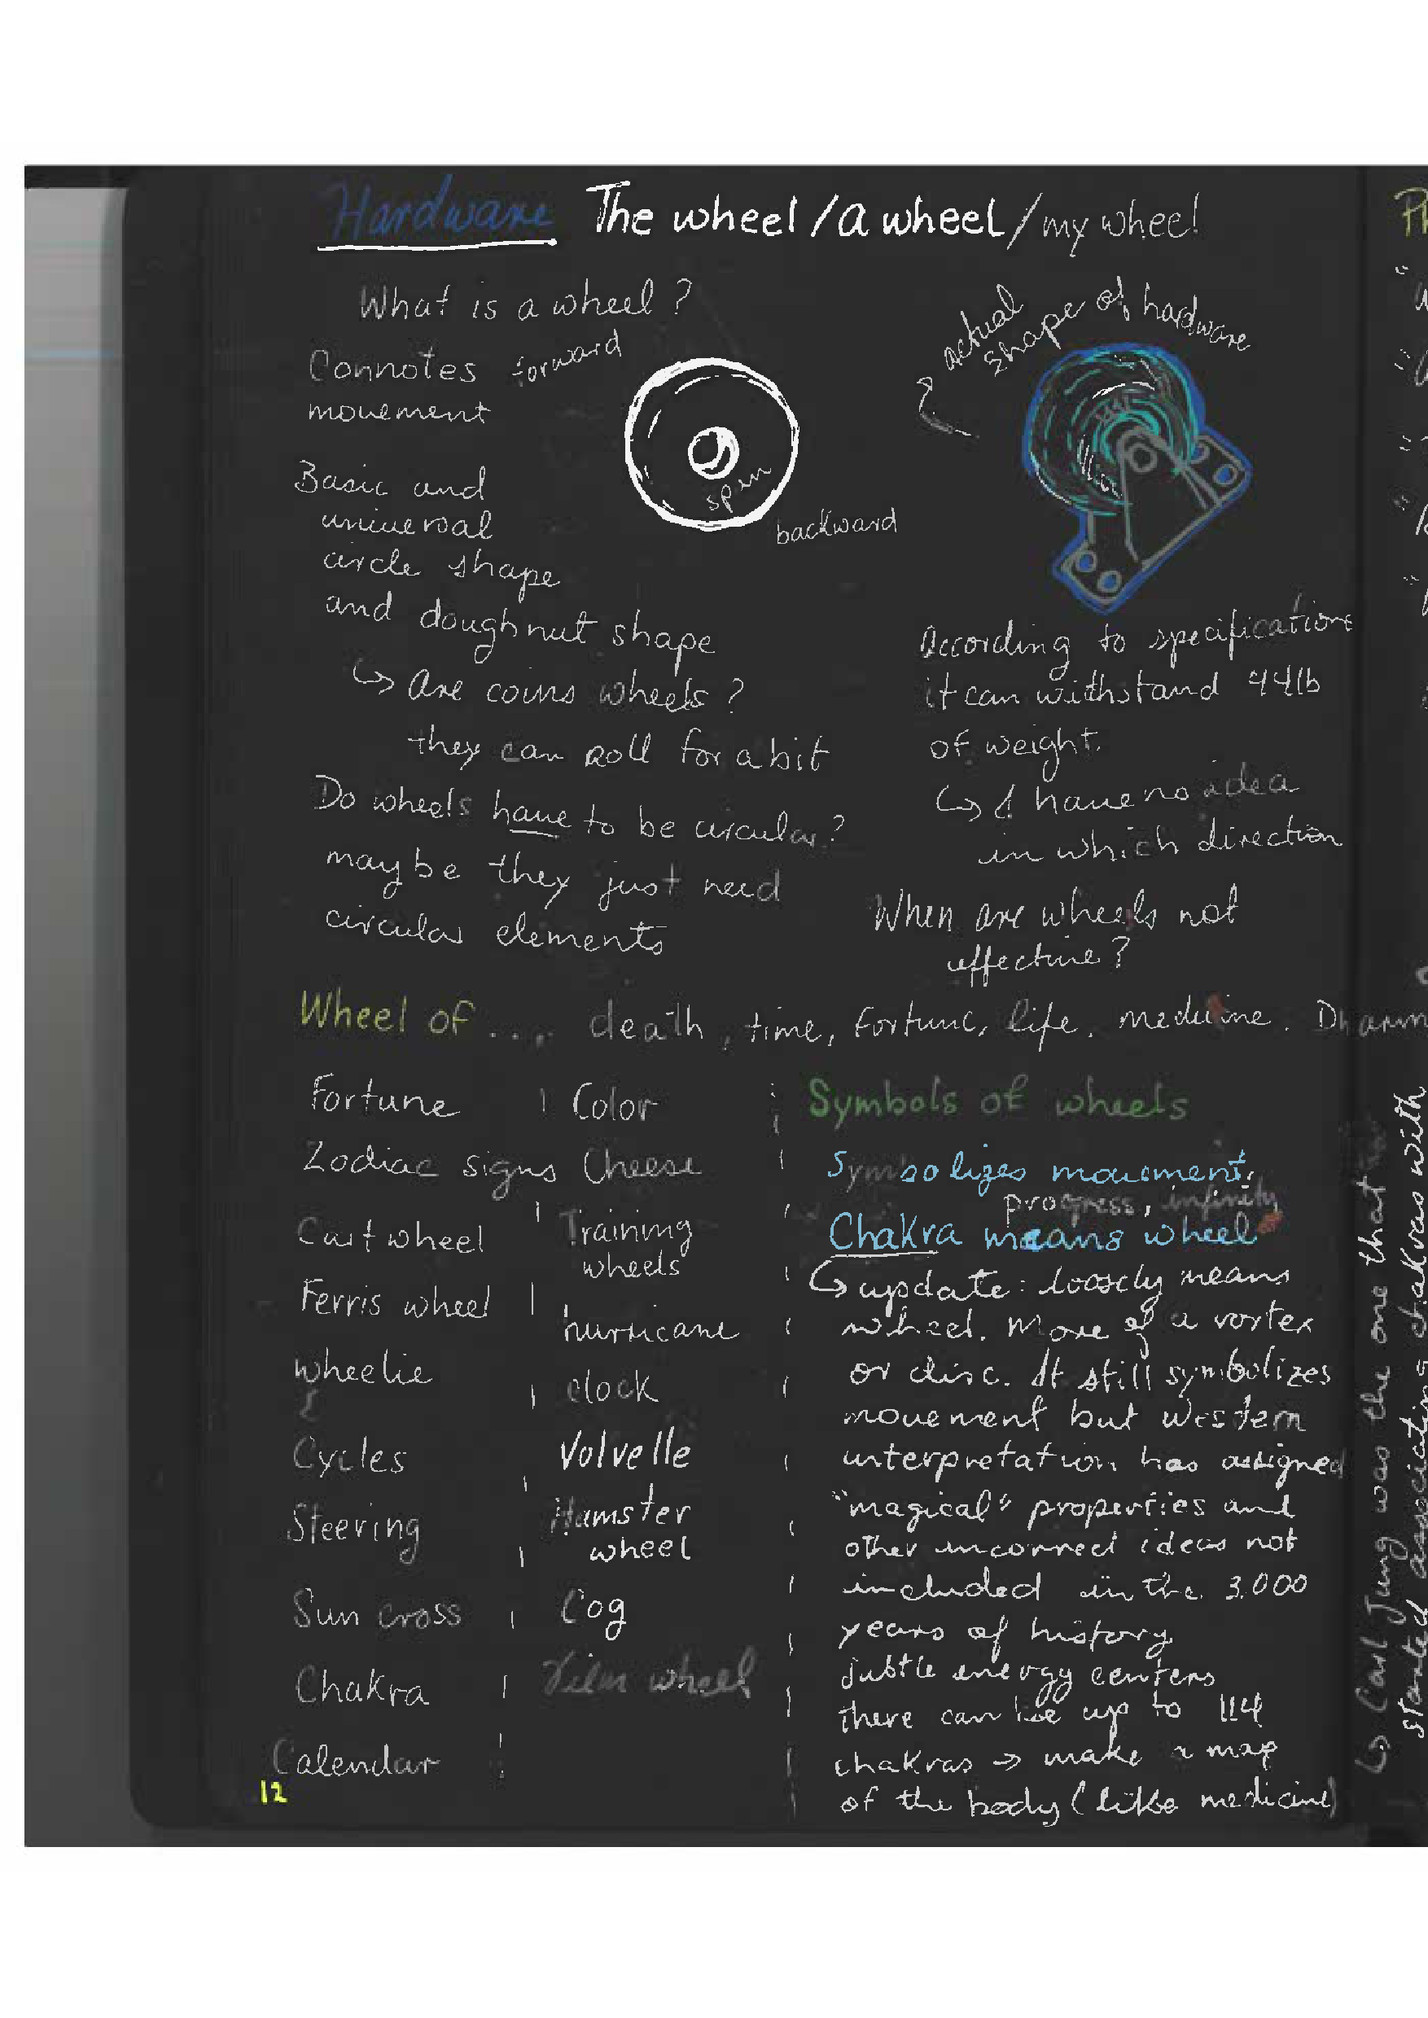 Hardware The wheel / a wheel / my wheel
What is a wheel?
Connotes forward
movement
spin
backward
actual
shape of hardware
Basic and
universal
circle shape
and doughnut shape
↳ are coins wheels?
they can roll for a bit
Do wheels have to be circular?
maybe they just need
circular elements
According to specifications
it can withstand 44lb
of weight.
↳ I have no idea
in which direction
When are wheels not
effective?
Wheel of .... death, time, fortune, life, medicine. Dharm
Fortune
Zodiac signs
Cartwheel
Ferris wheel
wheelie
Cycles
Steering
Sun cross
Chakra
Calendar
12
Color
Cheese
Training
wheels
hurricane
clock
Volvelle
Hamster
wheel
Cog
Film wheel
Symbols of wheels
Symbolizes movement,
progress, infinity
Chakra means wheel
↳ update: loosely means
wheel. More of a vortex
or disc. It still symbolizes
movement but western
interpretation has assigned
"magical" properties and
other incorrect ideas not
included in the 3.000
years of history.
subtle energy centers
there can be up to 114
chakras → make a map
of the body (like medicine)
↳ Carl Jung was the one that
started associating chakras with